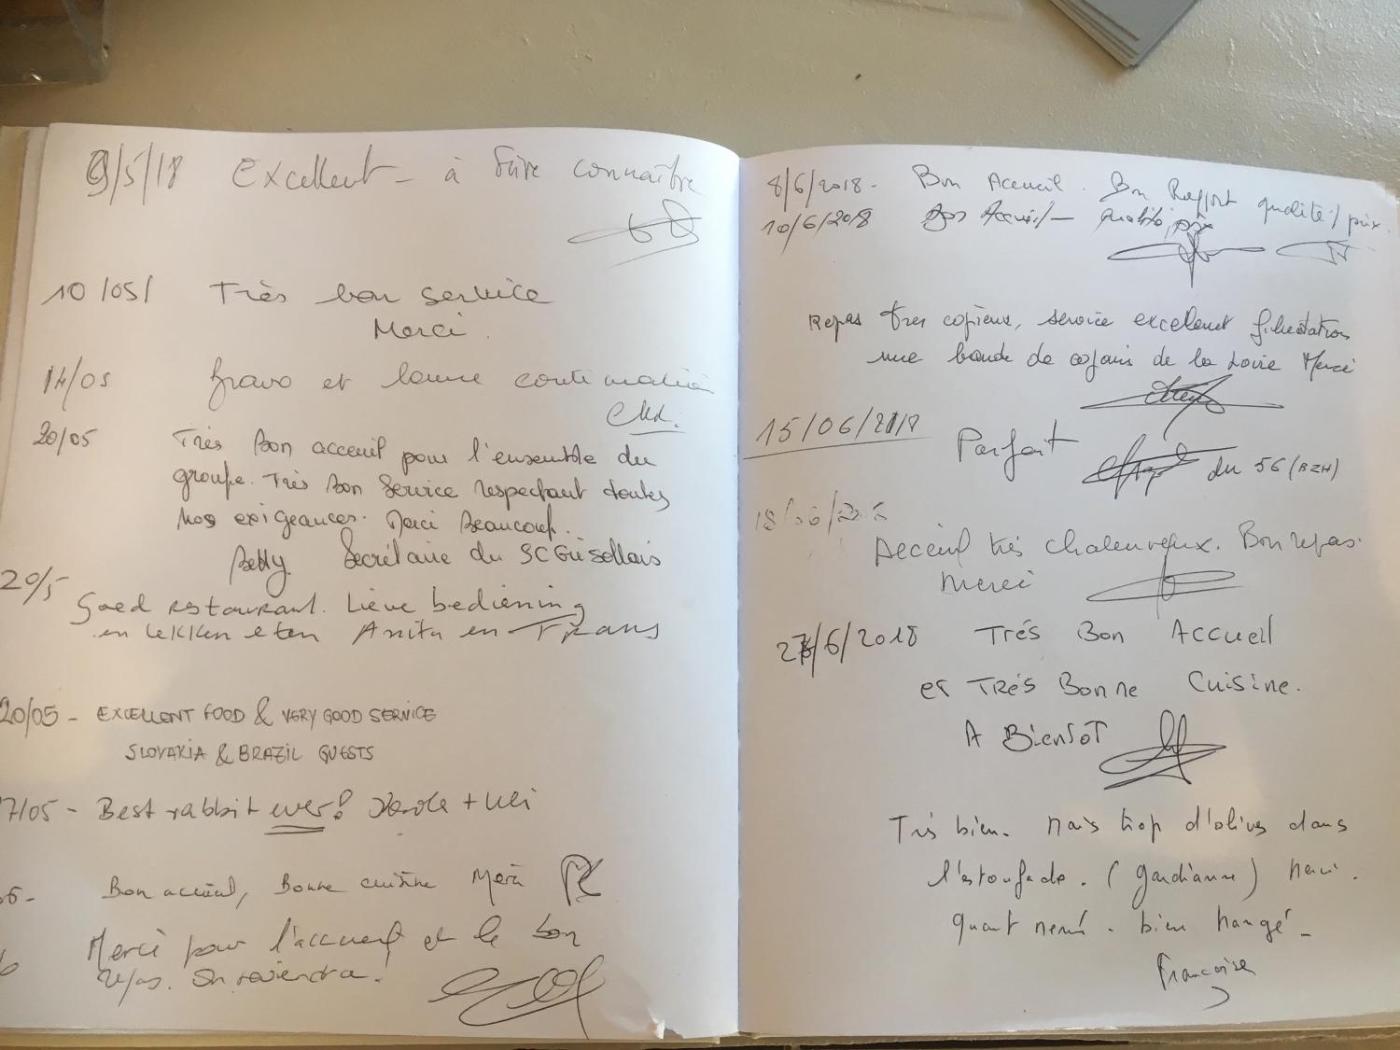 9/5/18 Excellent - à faire connaître
10/05/ Très bon service
Merci
14/05 Bravo et bonne continuation
20/05 Très Bon acceuil pour l'ensemble du
groupe. Très Bon Service respectant toutes
nos exigeances. Merci Beaucoup.
Betty Secrétaire du SC
20/5 Goed restaurant. Lieve bediening
en lekken eten Anita en Frans
20/05 - EXCELLENT FOOD & VERY GOOD SERVICE
SLOVAKIA & BRAZIL GUESTS
7/05 - Best rabbit ever!
Bon accueil, Bonne cuisine Merci
Merci pour l'accueil et le bon
repas. On reviendra!
8/6/2018 - Bon Acceuil. Bon Rapport qualité/prix
10/6/2018 Bon Accueil - Qualité prix
Repas tres copieux, service excellent
une bande de copains de la Loire Merci
15/06/2018 Parfait
du 56 (BZH)
18/06/
Acceuil très chaleureux. Bon repas.
Merci
27/6/2018 Trés Bon Accueil
et Trés Bonne Cuisine.
A Bientot
Très bien. Mais trop d'olives dans
l'estoufade. (gardianne) Merci.
quant même. bien mangé -
Françoise